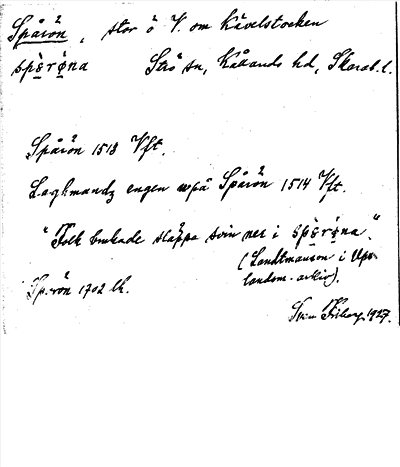 Spårön, stor ö V. om Kävelstocken
spè̱rø̱na Strö sn, Kållands hd, Skarab. l.
Spårön 1513 Vft.
Laghmandz engen wpå Spårön 1514 Vft.
"Folk brukade släppa svin ner i spè̱rø̱na."
(Landtmanson i Ups.
landsm.-arkiv).
Sp.rön 1702 lk.
1927.